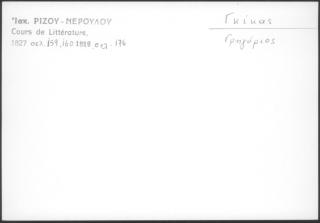 Ἰακ. ΡΙΖΟΥ-ΝΕΡΟΥΛΟΥ
Cours de Littérature,
1827 σελ. 159, 160 1828 σελ. 176
Γκίκας
Γρηγόριος